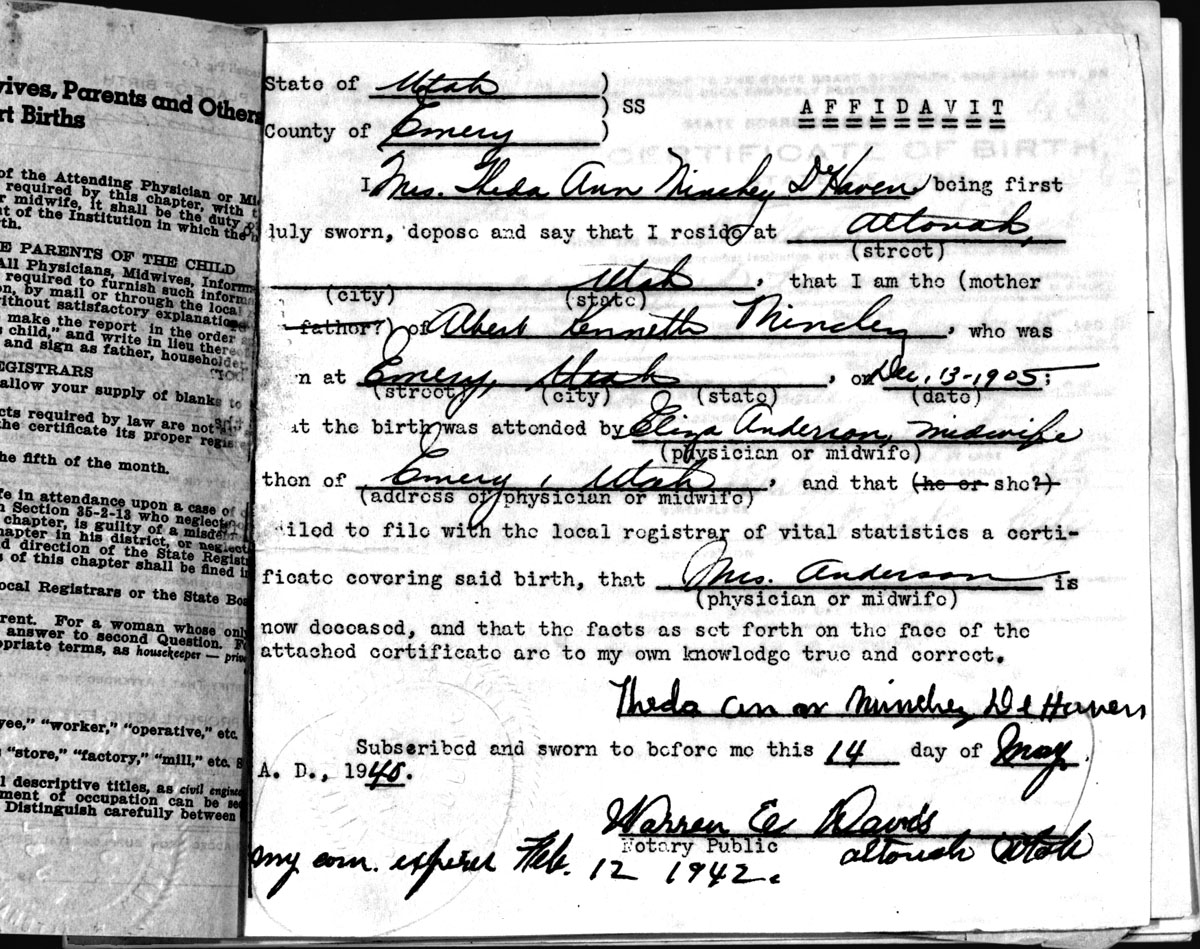 wives, Parents and Others
rt Births
of the Attending Physician or Mi
required by this chapter, with t
r midwife, it shall be the duty of
nt of the Institution in which the
rth.
E PARENTS OF THE CHILD
All Physicians, Midwives, Informa
required to furnish such informa
on, by mail or through the local
without satisfactory explanation
make the report in the order
s child," and write in lieu there
and sign as father, householder
EGISTRARS
allow your supply of blanks to
cts required by law are not
the certificate its proper regis
he fifth of the month.
fe in attendance upon a case of
n Section 35-2-13 who neglect
chapter, is guilty of a misdem
hapter in his district, or neglect
d direction of the State Registr
s of this chapter shall be fined in
ocal Registrars or the State Boa
rent. For a woman whose only
answer to second Question. F
opriate terms, as housekeeper — priv
yee," "worker," "operative," etc.
"store," "factory," "mill," etc. S
l descriptive titles, as civil engine
ment of occupation can be sec
Distinguish carefully between
State of Utah )
) SS AFFIDAVIT
County of Emery )
I Mrs. Theda Ann Minchey D'Haven being first
duly sworn, depose and say that I reside at Altonah,
(street)
Utah, that I am the (mother
(city) (state)
father?) of Albert Kenneth Minchey, who was
n at Emery, Utah, on Dec. 13-1905;
(street) (city) (state) (date)
at the birth was attended by Eliza Anderson, midwife
(physician or midwife)
then of Emery, Utah, and that (he or she?)
(address of physician or midwife)
iled to file with the local registrar of vital statistics a certi-
ficate covering said birth, that Mrs. Anderson is
(physician or midwife)
now deceased, and that the facts as set forth on the face of the
attached certificate are to my own knowledge true and correct.
Theda Minchey De Haven
Subscribed and sworn to before me this 14 day of May
A. D., 1940.
Warren E. Davis
Notary Public altonah Utah
my com. expires Feb. 12 1942.